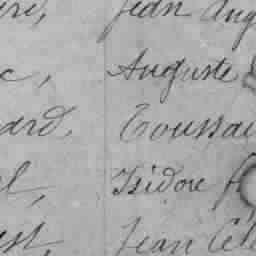 Jean Aug
c, Auguste
ard, Toussai
l, Isidore
est, Jean Cél